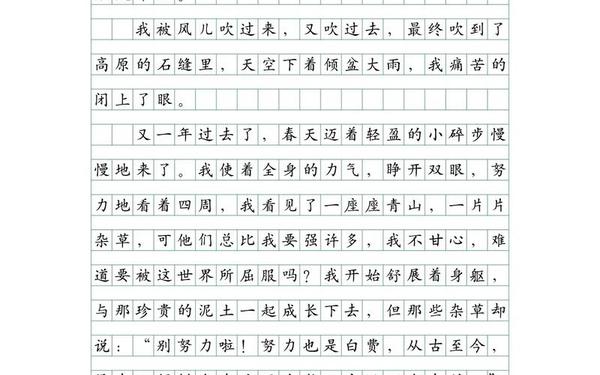 我被风儿吹过来，又吹过去，最终吹到了
高原的石缝里，天空下着倾盆大雨，我痛苦的
闭上了眼。
又一年过去了，春天迈着轻盈的小碎步慢
慢地来了。我使着全身的力气，睁开双眼，努
力地看着四周，我看见了一座座青山，一片片
杂草，可他们总比我要强许多，我不甘心，难
道要被这世界所屈服吗？我开始舒展着身躯，
与那珍贵的泥土一起成长下去，但那些杂草却
说：“别努力啦！努力也是白费，从古至今，